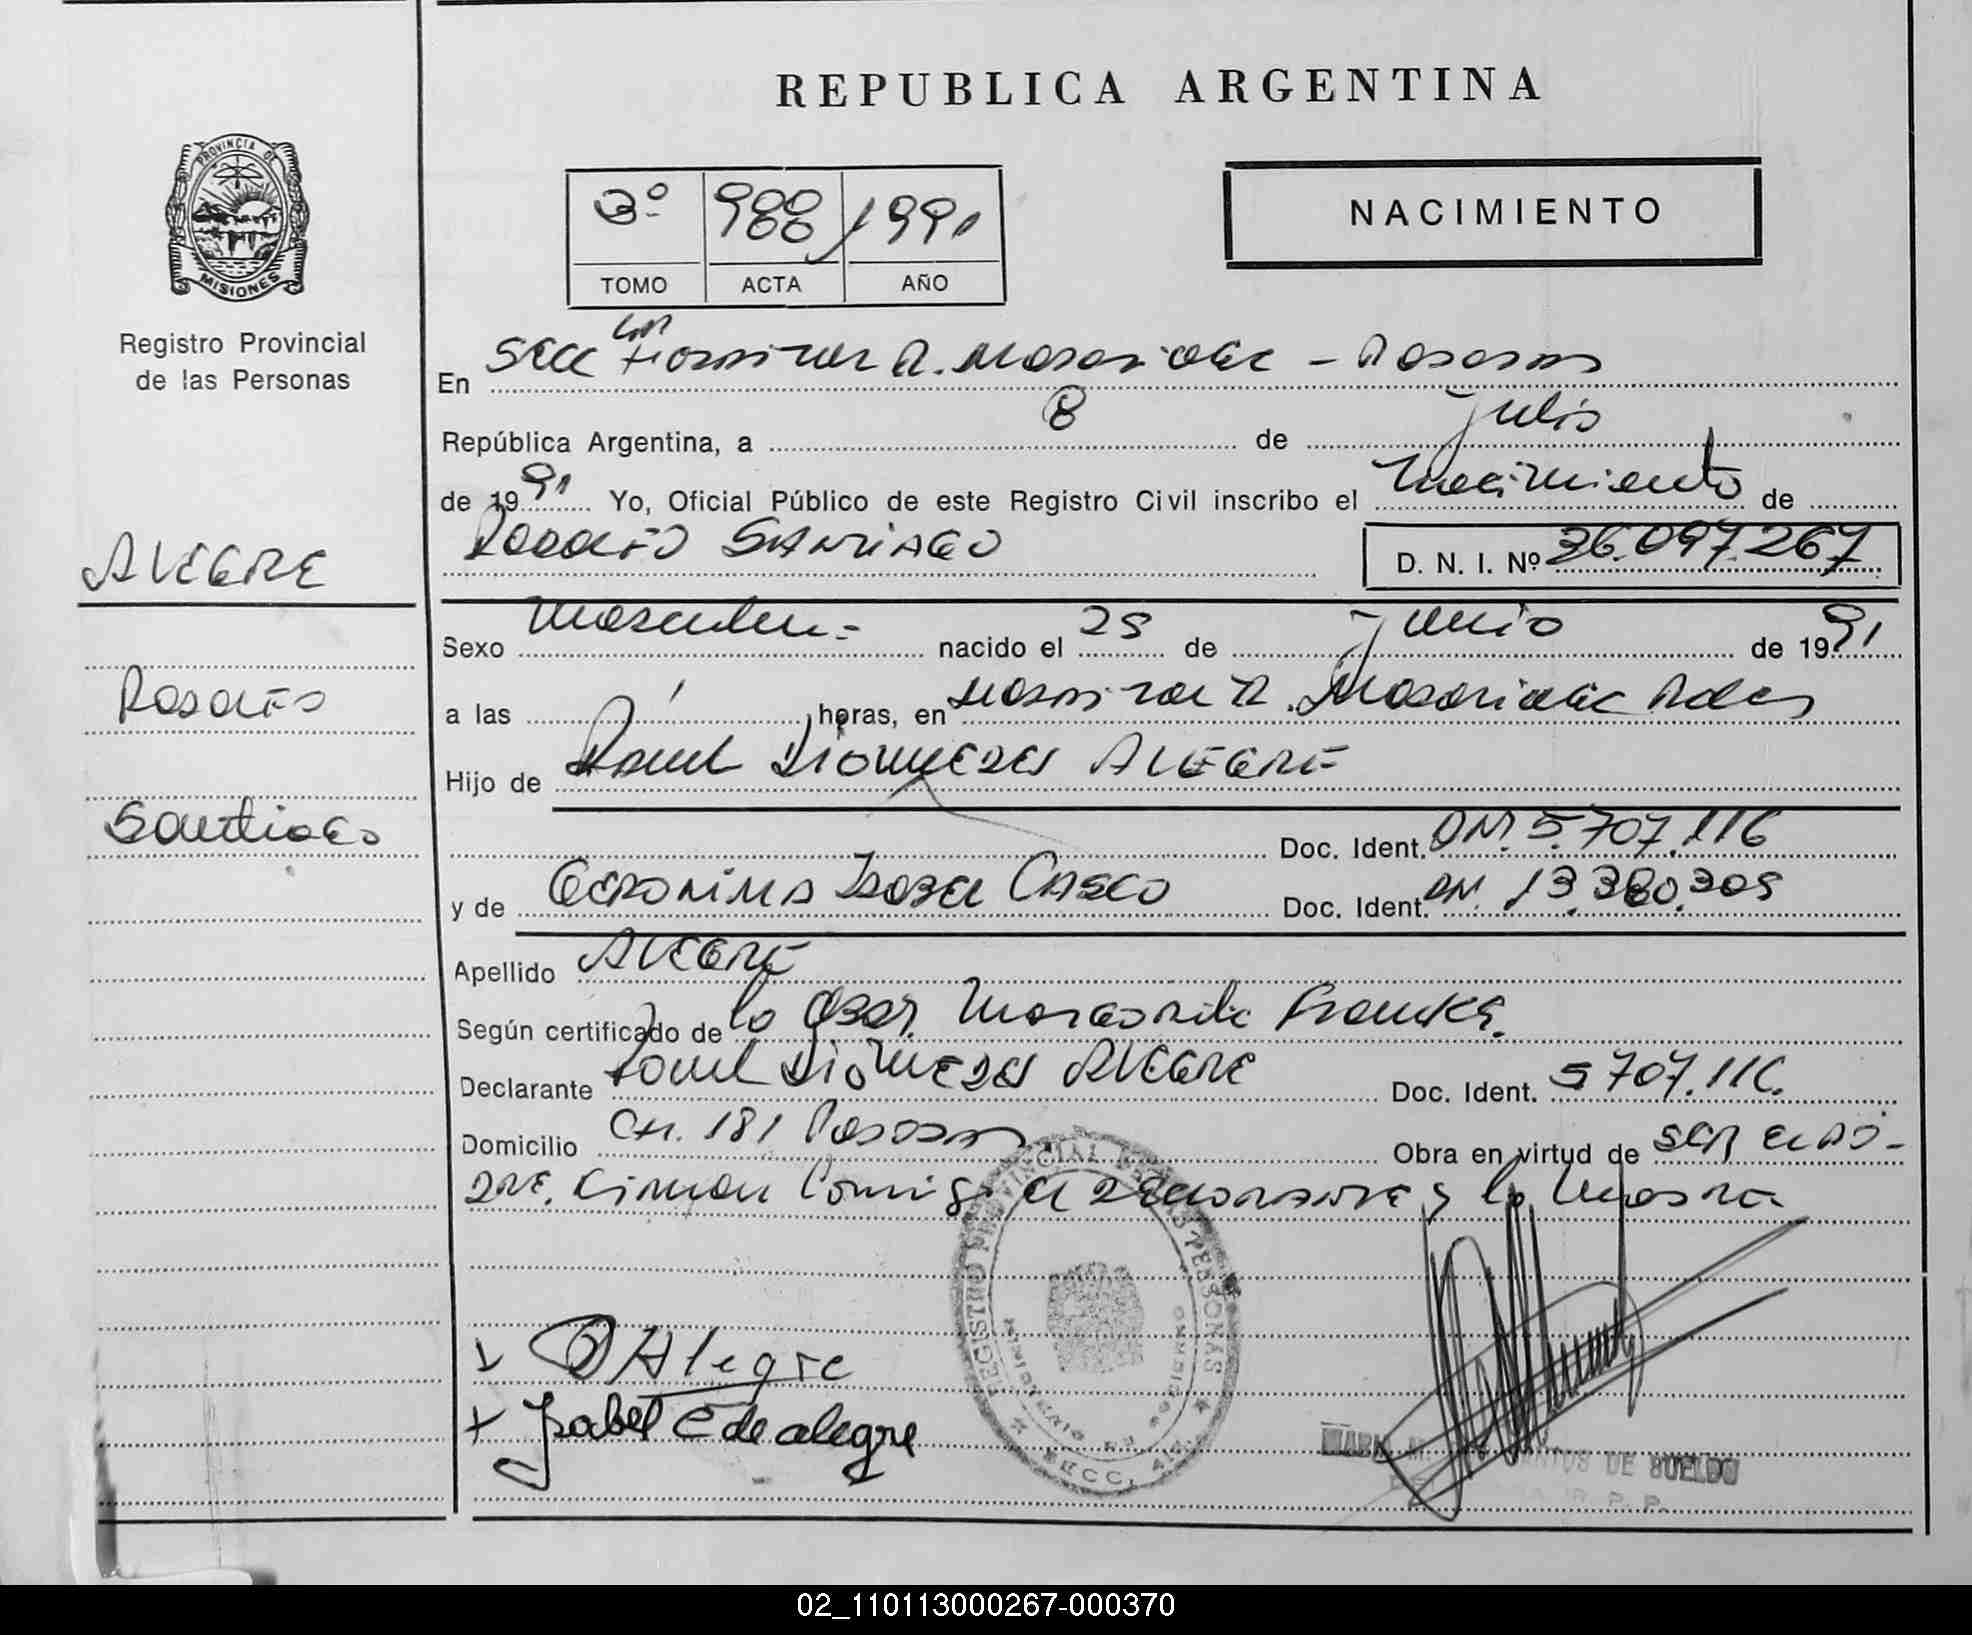 REPUBLICA ARGENTINA
PROVINCIA DE
MISIONES
Registro Provincial
de las Personas
3º 988 / 1991
TOMO ACTA AÑO
NACIMIENTO
En Secc Hospital R. Madariaga - Posadas
República Argentina, a 8 de julio
de 1991 Yo, Oficial Público de este Registro Civil inscribo el nacimiento de
RODOLFO SANTIAGO D. N. I. Nº 36.097.267
ALEGRE
Rodolfo
Santiago
Sexo masculino - nacido el 25 de junio de 1991
a las 1 horas, en Hospital R. Madariaga Pdas
Hijo de Raul Diomedes ALEGRE
Doc. Ident. DNI. 5.707.116
y de GERONIMA Isabel CASCO Doc. Ident. DNI. 13.380.305
Apellido ALEGRE
Según certificado de la Obst. Margarita
Declarante Raul Diomedes ALEGRE Doc. Ident. 5707.116
Domicilio CH. 181 Posadas Obra en virtud de ser el pa-
dre. Firman Conmigo el declarante y la madre
REGISTRO PROVINCIAL DE LAS PERSONAS
SECC.
x Alegre
x Isabel C de alegre
DE SUELDO
R. P. P.
02_110113000267-000370